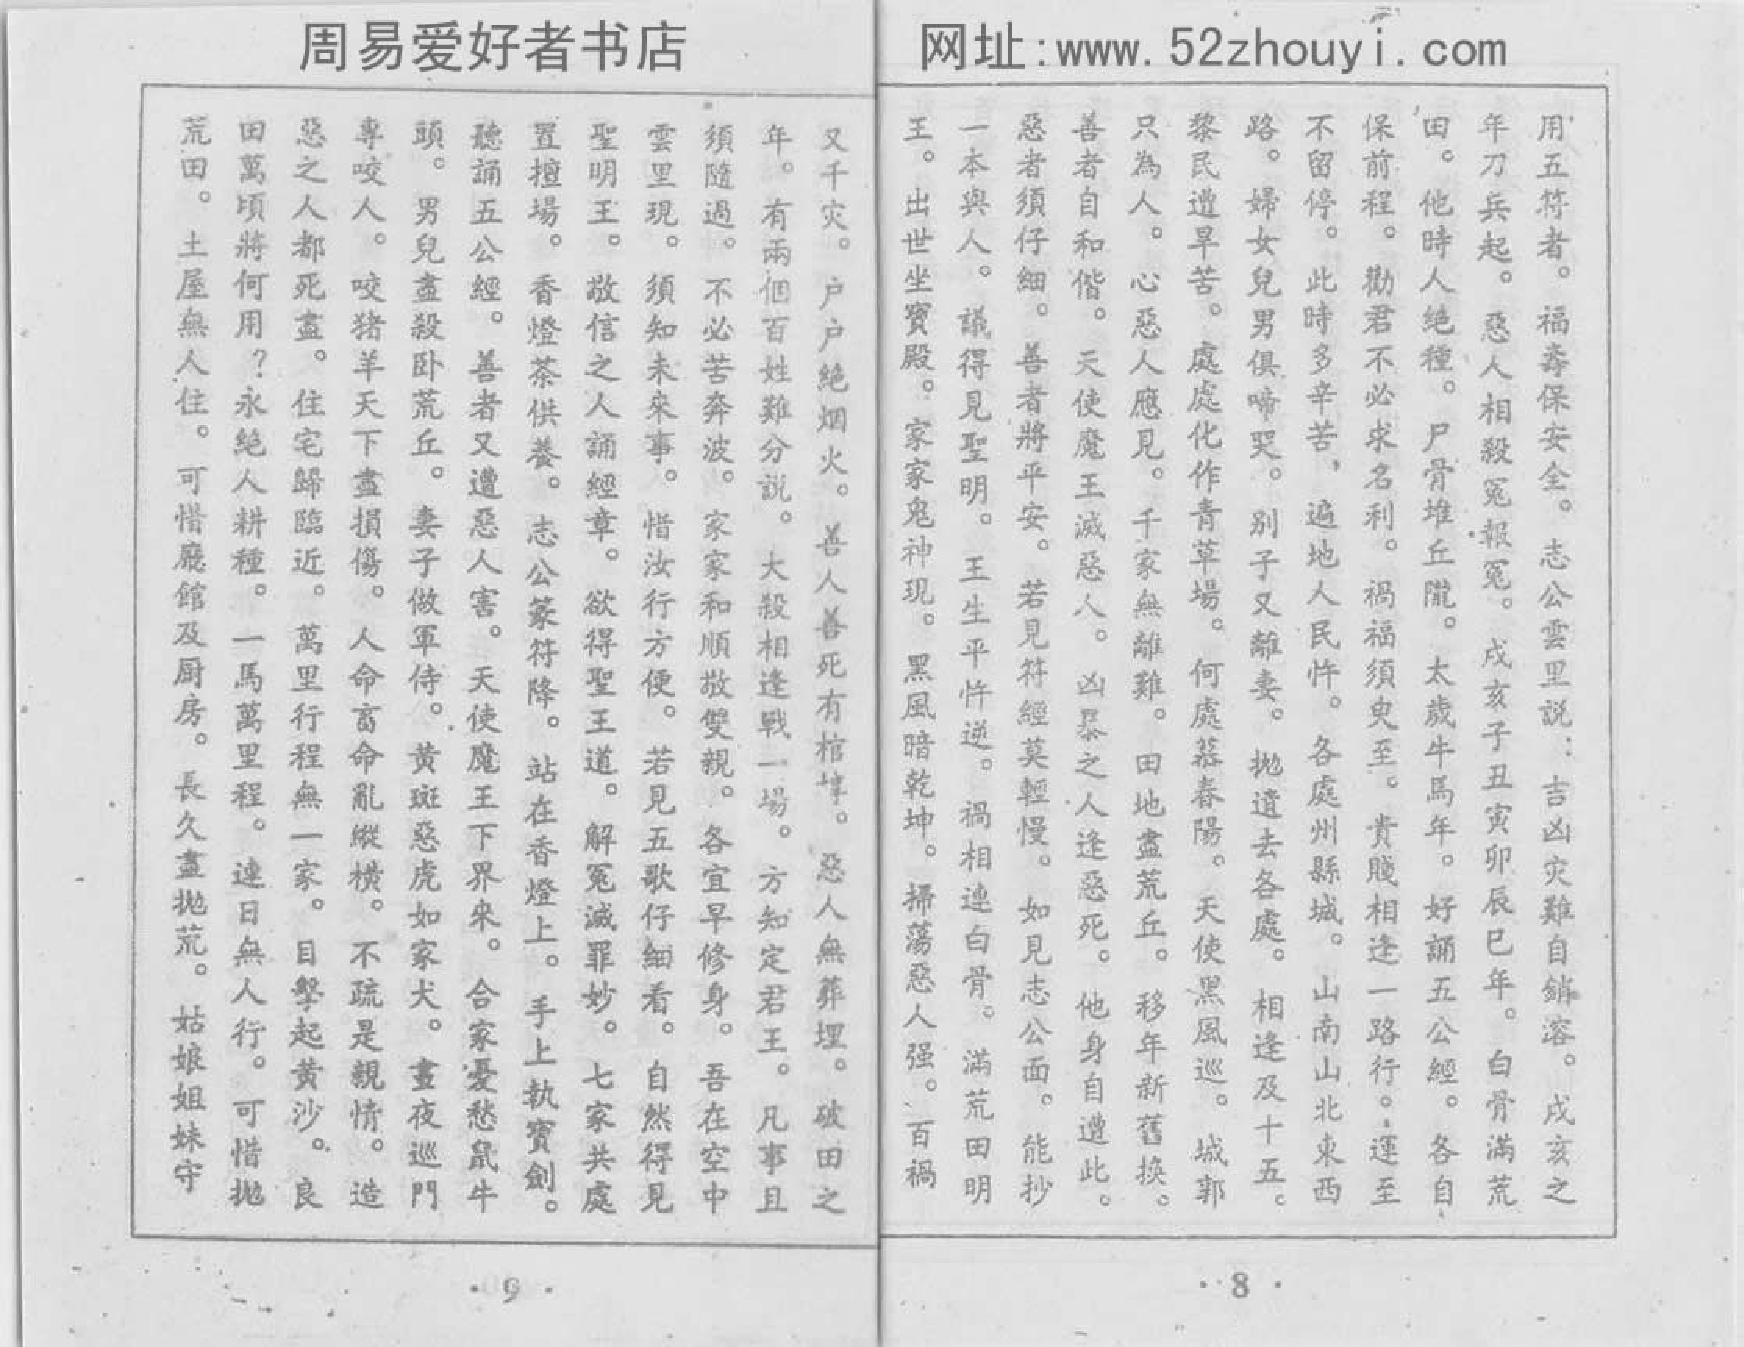 周易爱好者书店
网址:www.52zhouyi.com
用五符者。福壽保安全。志公雲里説：吉凶灾難自銷溶。戌亥之
年刀兵起。惡人相殺冤報冤。戌亥子丑寅卯辰巳年。白骨滿荒
田。他時人绝種。尸骨堆丘隴。太歲牛馬年。好誦五公經。各自
保前程。勸君不必求名利。禍福須臾至。貴賤相逢一路行。運至
不留停。此時多辛苦，遍地人民忤。各處州縣城。山南山北東西
路。婦女兒男俱啼哭。别子又離妻。抛遺去各處。相逢及十五。
黎民遭旱苦。處處化作青草場。何處慕春陽。天使黑風巡。城郭
只為人。心惡人應見。千家無離難。田地盡荒丘。移年新舊换。
善者自和偕。天使魔王滅惡人。凶暴之人逢惡死。他身自遭此。
惡者須仔細。善者將平安。若見符經莫輕慢。如見志公面。能抄
一本與人。議得見聖明。王生平忤逆。禍相連白骨。滿荒田明
王。出世坐寶殿。家家鬼神現。黑風暗乾坤。掃蕩惡人强。百禍
· 8 ·
又千灾。户户绝烟火。善人善死有棺埲。惡人無葬埋。破田之
年。有兩個百姓難分説。大殺相逢戰一場。方知定君王。凡事且
須隨過。不必苦奔波。家家和順敬雙親。各宜早修身。吾在空中
雲里現。須知未來事。惜汝行方便。若見五歌仔細看。自然得見
聖明王。敬信之人誦經章。欲得聖王道。解冤滅罪妙。七家共處
置壇場。香燈茶供養。志公篆符降。站在香燈上。手上執寶劍。
聽誦五公經。善者又遭惡人害。天使魔王下界來。合家憂愁鼠牛
頭。男兒盡殺卧荒丘。妻子做軍侍。黄斑惡虎如家犬。晝夜巡門
專咬人。咬猪羊天下盡損傷。人命畜命亂縱横。不疏是親情。造
惡之人都死盡。住宅歸臨近。萬里行程無一家。目擊起黄沙。良
田萬頃將何用？永絶人耕種。一馬萬里程。連日無人行。可惜抛
荒田。土屋無人住。可惜廳館及厨房。長久盡抛荒。姑娘姐妹守
· 9 ·